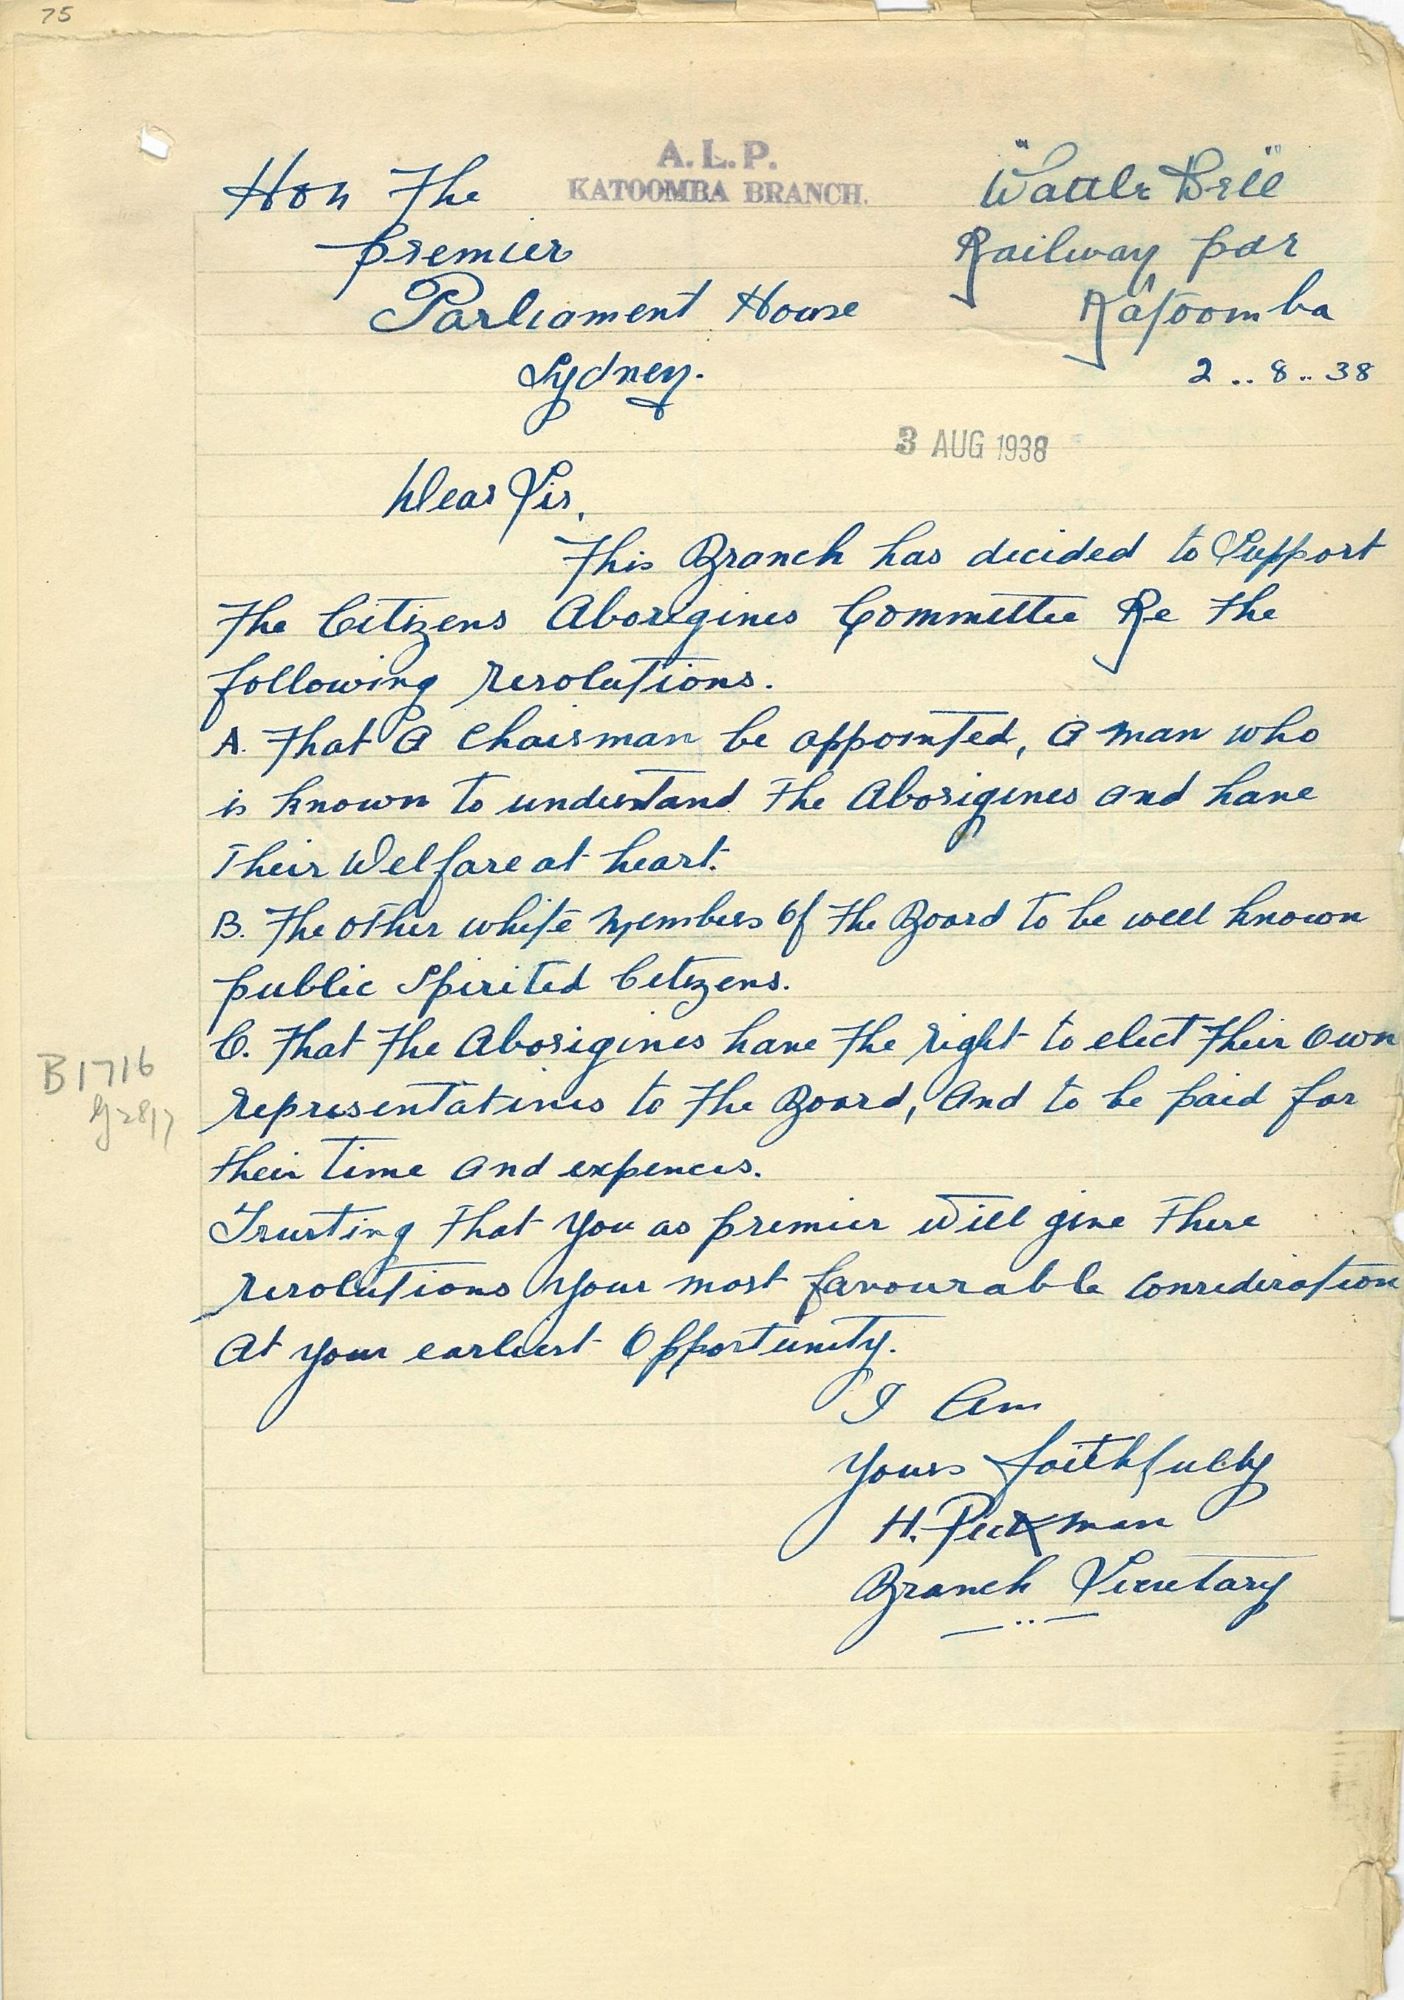 75
A.L.P.
KATOOMBA BRANCH.
Hon The
Premier
Parliament House
Sydney.
"Wattle Dell"
Railway pde
Katoomba
2..8..38
3 AUG 1938
Dear Sir,
This Branch has decided to Support
The Citizens Aborigines Committee Re The
following resolutions.
A. That a Chairman be appointed, a man who
is known to understand The Aborigines and have
Their Welfare at heart.
B. The other white Members of The Board to be well known
public Spirited Citizens.
C. That The Aborigines have The right to elect Their own
representatives to The Board, And to be paid for
Their time and expences.
Trusting That you as premier will give These
resolutions your most favourable consideration
At your earliest Opportunity.
I Am
Yours faithfully
H. Peckman
Branch Secretary
B1716